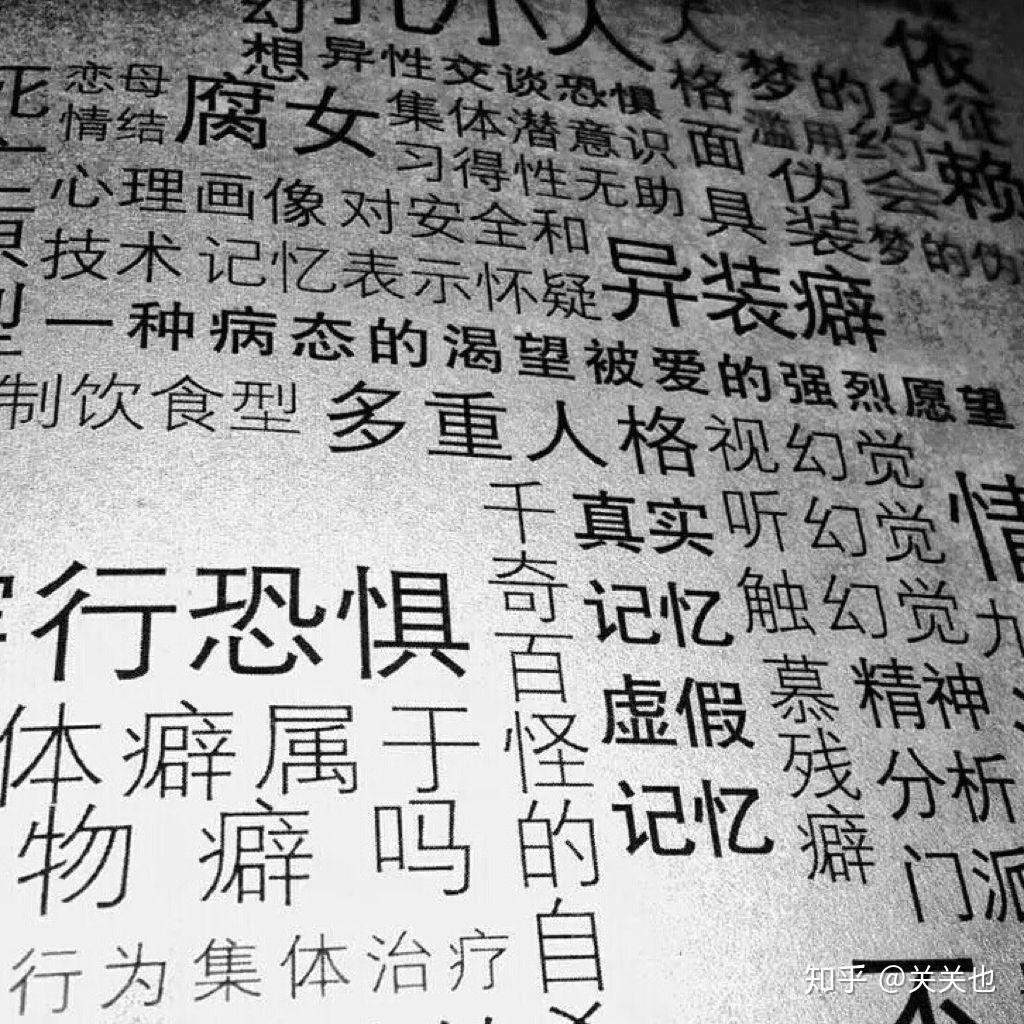 想异性交谈恐惧
格
梦的象征
依
赖
恋母
情结
腐女
集体潜意识
面
具
滥用
约
会
伪
装
习得性无助
心理画像
对安全和
梦的伪
技术
记忆表示怀疑
异装癖
一种病态的渴望被爱的强烈愿望
制饮食型
多重人格
视幻觉
千
奇
百
怪
的
自
真实
记忆
听幻觉
触幻觉
情
行恐惧
虚假
记忆
慕
残
癖
精神
分析
门派
九
体癖属于
物癖吗
行为集体治疗
知乎 @关关也